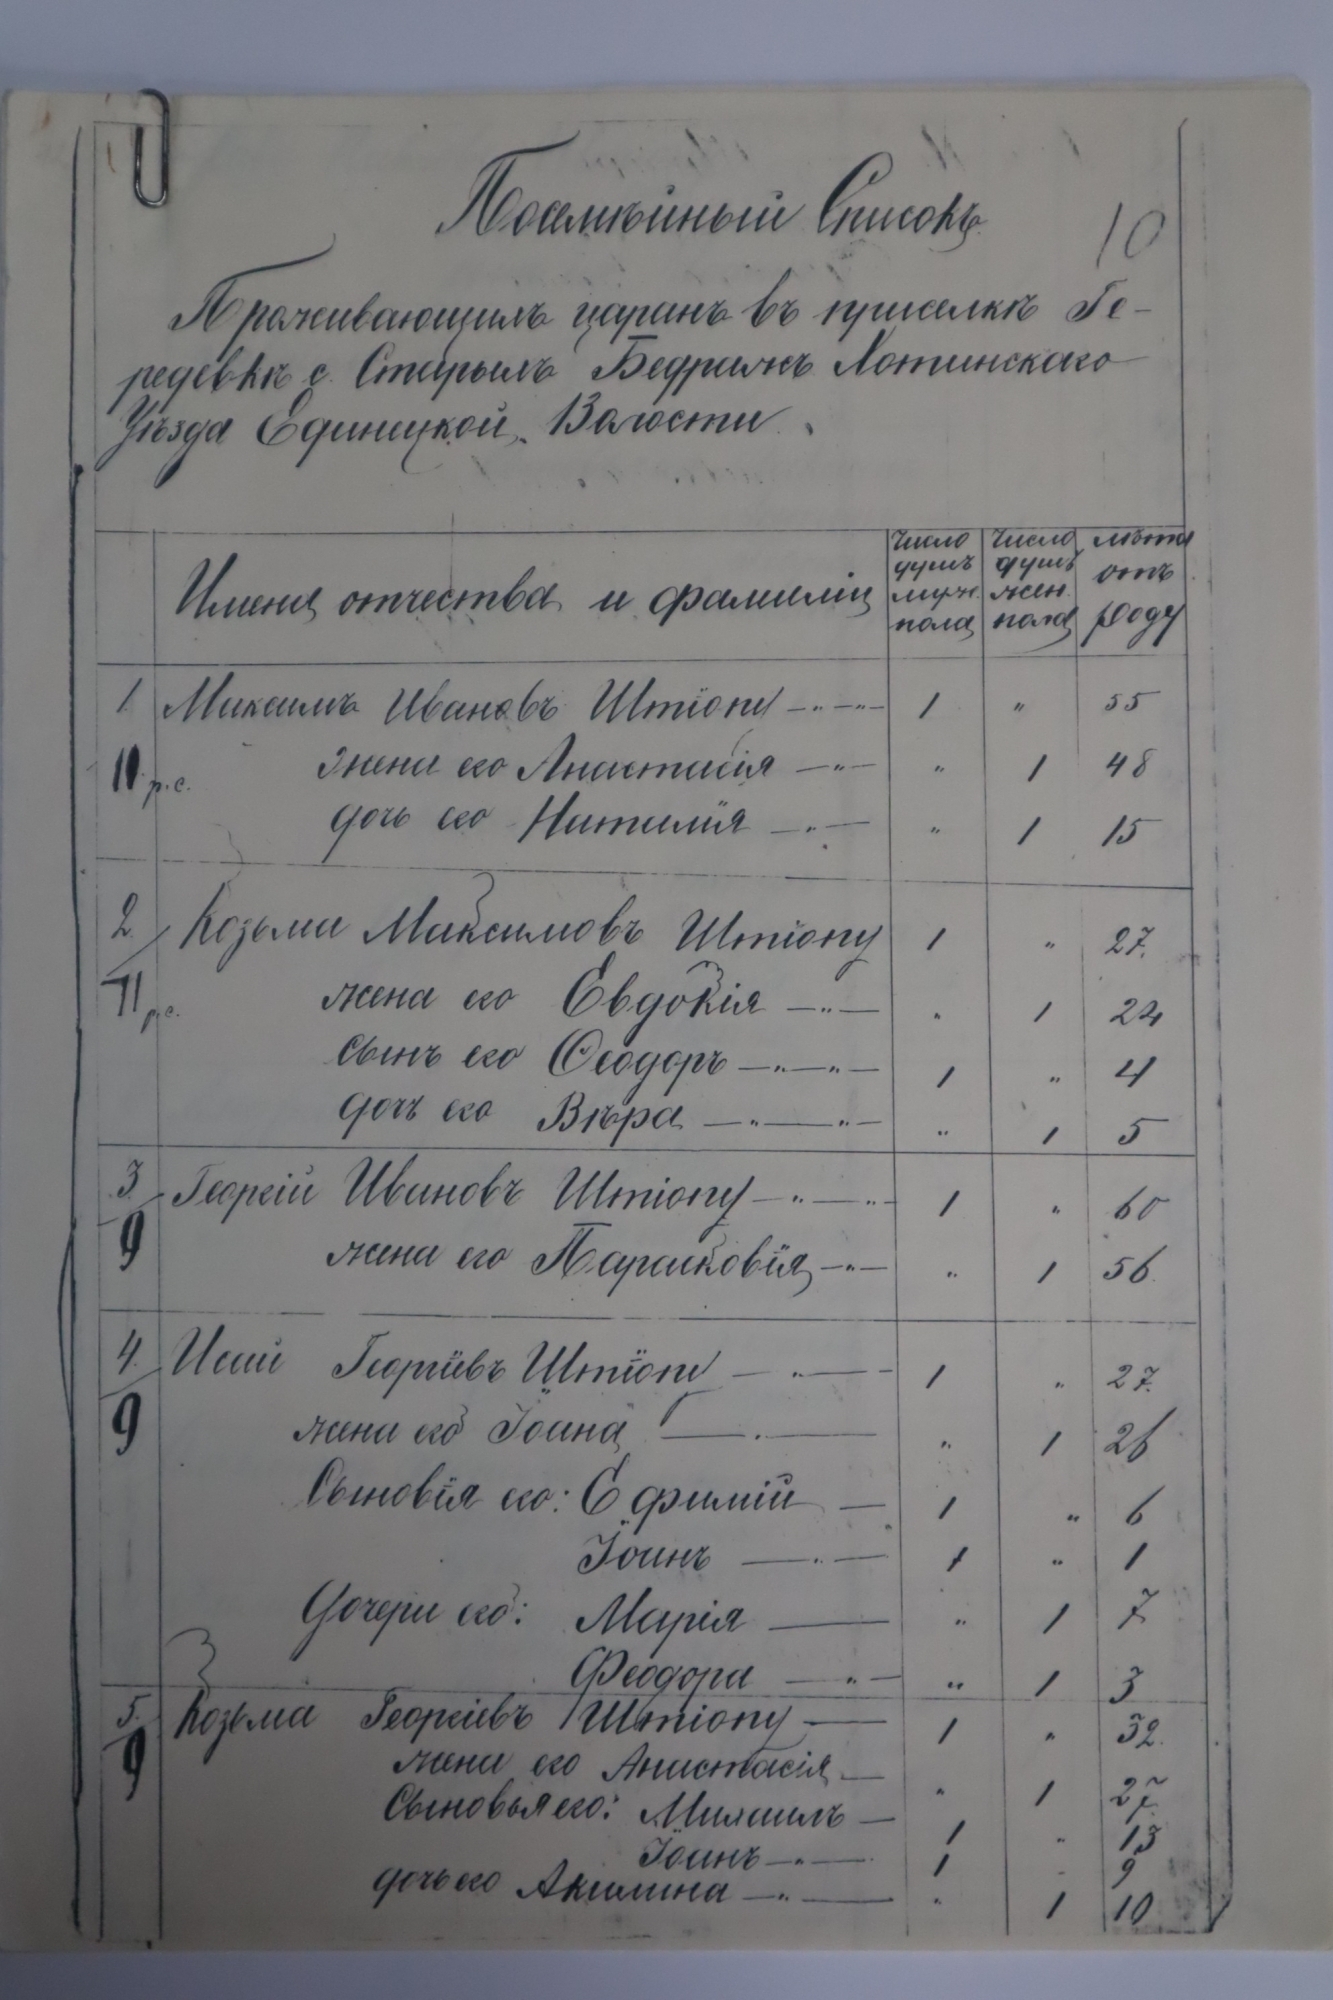 Посемѣйный Списокъ
10
Проживающимъ царанъ въ приселкѣ Ге-
редевкѣ с. Старымъ Бедражъ Хотинскаго
Уѣзда Единецкой Волости
Имена отчества и фамилiи
Число душъ муж. пола
Число душъ жен. пола
Лѣта отъ роду
1 Максимъ Ивановъ Штiопу —„—„— 1 „ 55
10 р.с. жена его Анастасiя —„— „ 1 48
дочь его Наталiя —„— „ 1 15
2 Козьма Максимовъ Штiопу 1 „ 27.
11 р.с. жена его Евдокiя —„— „ 1 24
сынъ его Ѳеодоръ —„—„— 1 „ 4
дочь его Вѣра —„—„— „ 1 5
3. Георгiй Ивановъ Штiопу —„—„— 1 „ 60
9 жена его Парасковiя —„— „ 1 56
4. Исай Георгiевъ Штiопу —„— 1 „ 27.
9 жена его Iоана —„— „ 1 26
Сыновiя его: Ефимiй — 1 „ 6
Iоанъ —„— 1 „ 1
Дочери его: Марiя — „ 1 7
Феодора —„— „ 1 3
5. Козьма Георгiевъ Штiопу — 1 „ 32.
9 жена его Анастасiя — „ 1 27
Сыновья его: Михаилъ — 1 „ 13
Iоанъ —„— 1 „ 9
дочь его Акилина —„— „ 1 10